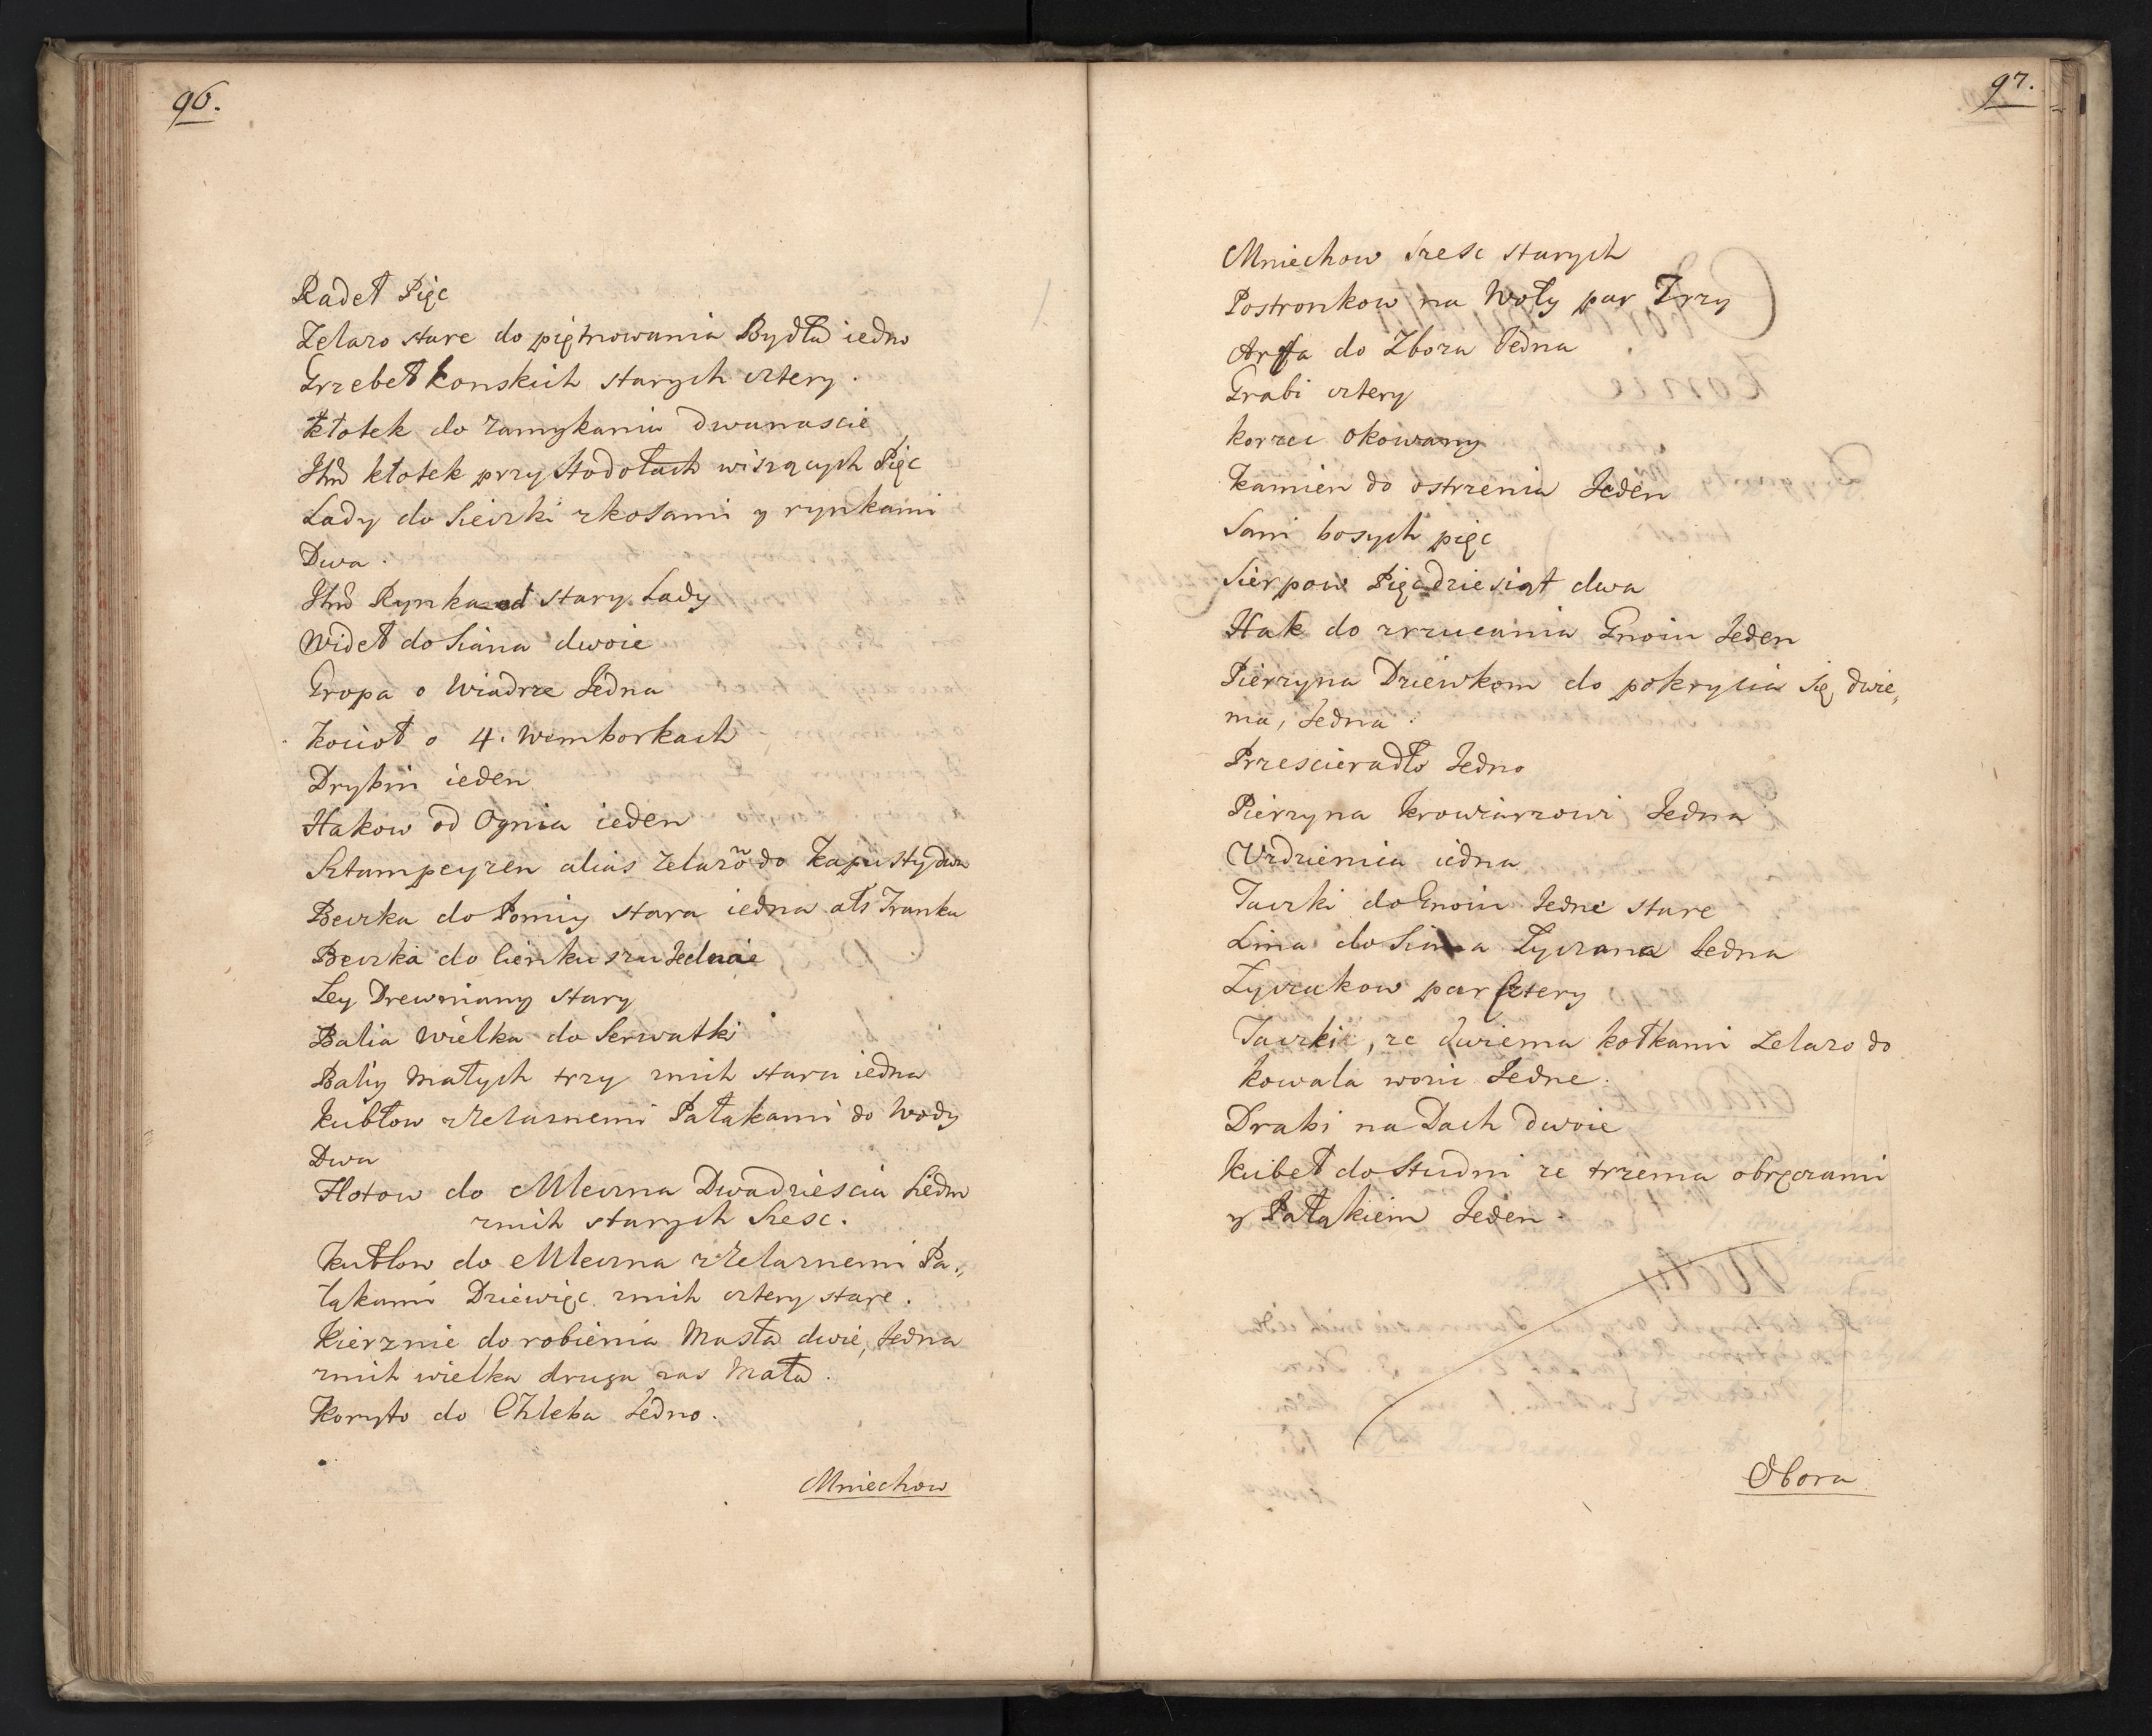 96.
Radeł Pięc
Zelazo stare do piętnowania Bydła iedno
Grzebeł konskich starych cztery.
kłotek do zamykania dwanascie
Itm̃ kłotek przy Stodołach wiszących Pięc
Lady do Sieczki z kosami y rynkami
Dwa.
Itm̃ Rynka od stary Lady
Wideł do Siana dwoie
Gropa o Wiadrze Jedna
Kocioł o 4. Wemborkach
Drybin ieden
Hakow od Ognia ieden
Sztampeyzen alias Zelazõ do Kapusty dwa
Beczka do Pomiy stara iedna als Tranka
Beczka do Cienkuszu Jedna
Ley Drewniany stary
Balia Wielka do Serwatki
Baliy Małych trzy znich stara iedna
kubłow z Zelaznemi Pałąkami do Wody
Dwa
Flotow do Mleczna Dwadziescia Siedm
znich starych Szesc.
Kubłow do Mleczna z Zelaznemi Pa„
łąkami Dziewięc znich cztery stare.
Kierznie do robienia Masła dwie, Jedna
znich wielka druga zas Mała.
Koryto do Chleba Jedno.
Mniechow
97.
Mniechow szesc starych
Postronkow na Woły par Trzy
Arffa do Zboza Jedna
Grabi cztery
korzec okowany
Kamien do ostrzenia Jeden
Sani bosych pięc
Sierpow Pięcdziesiąt dwa
Hak do zrzucania Gnoiu Jeden
Pierzyna Dziewkom do pokrycia się, dwie„
ma, Jedna.
Przescieradło Jedno
Pierzyna krowiarzowi Jedna
Uzdzienica iedna
Taczki do Gnoiu Jedne stare
Lina do Siana Łyczana Jedna
Łyczakow par Cztery
Taczki, ze dwiema kołkami Zelazo do
kowala wozic Jedne.
Drabi na Dach dwoie
Kubeł do Studni ze trzema obręczami
y Pałąkiem Jeden.
Obora